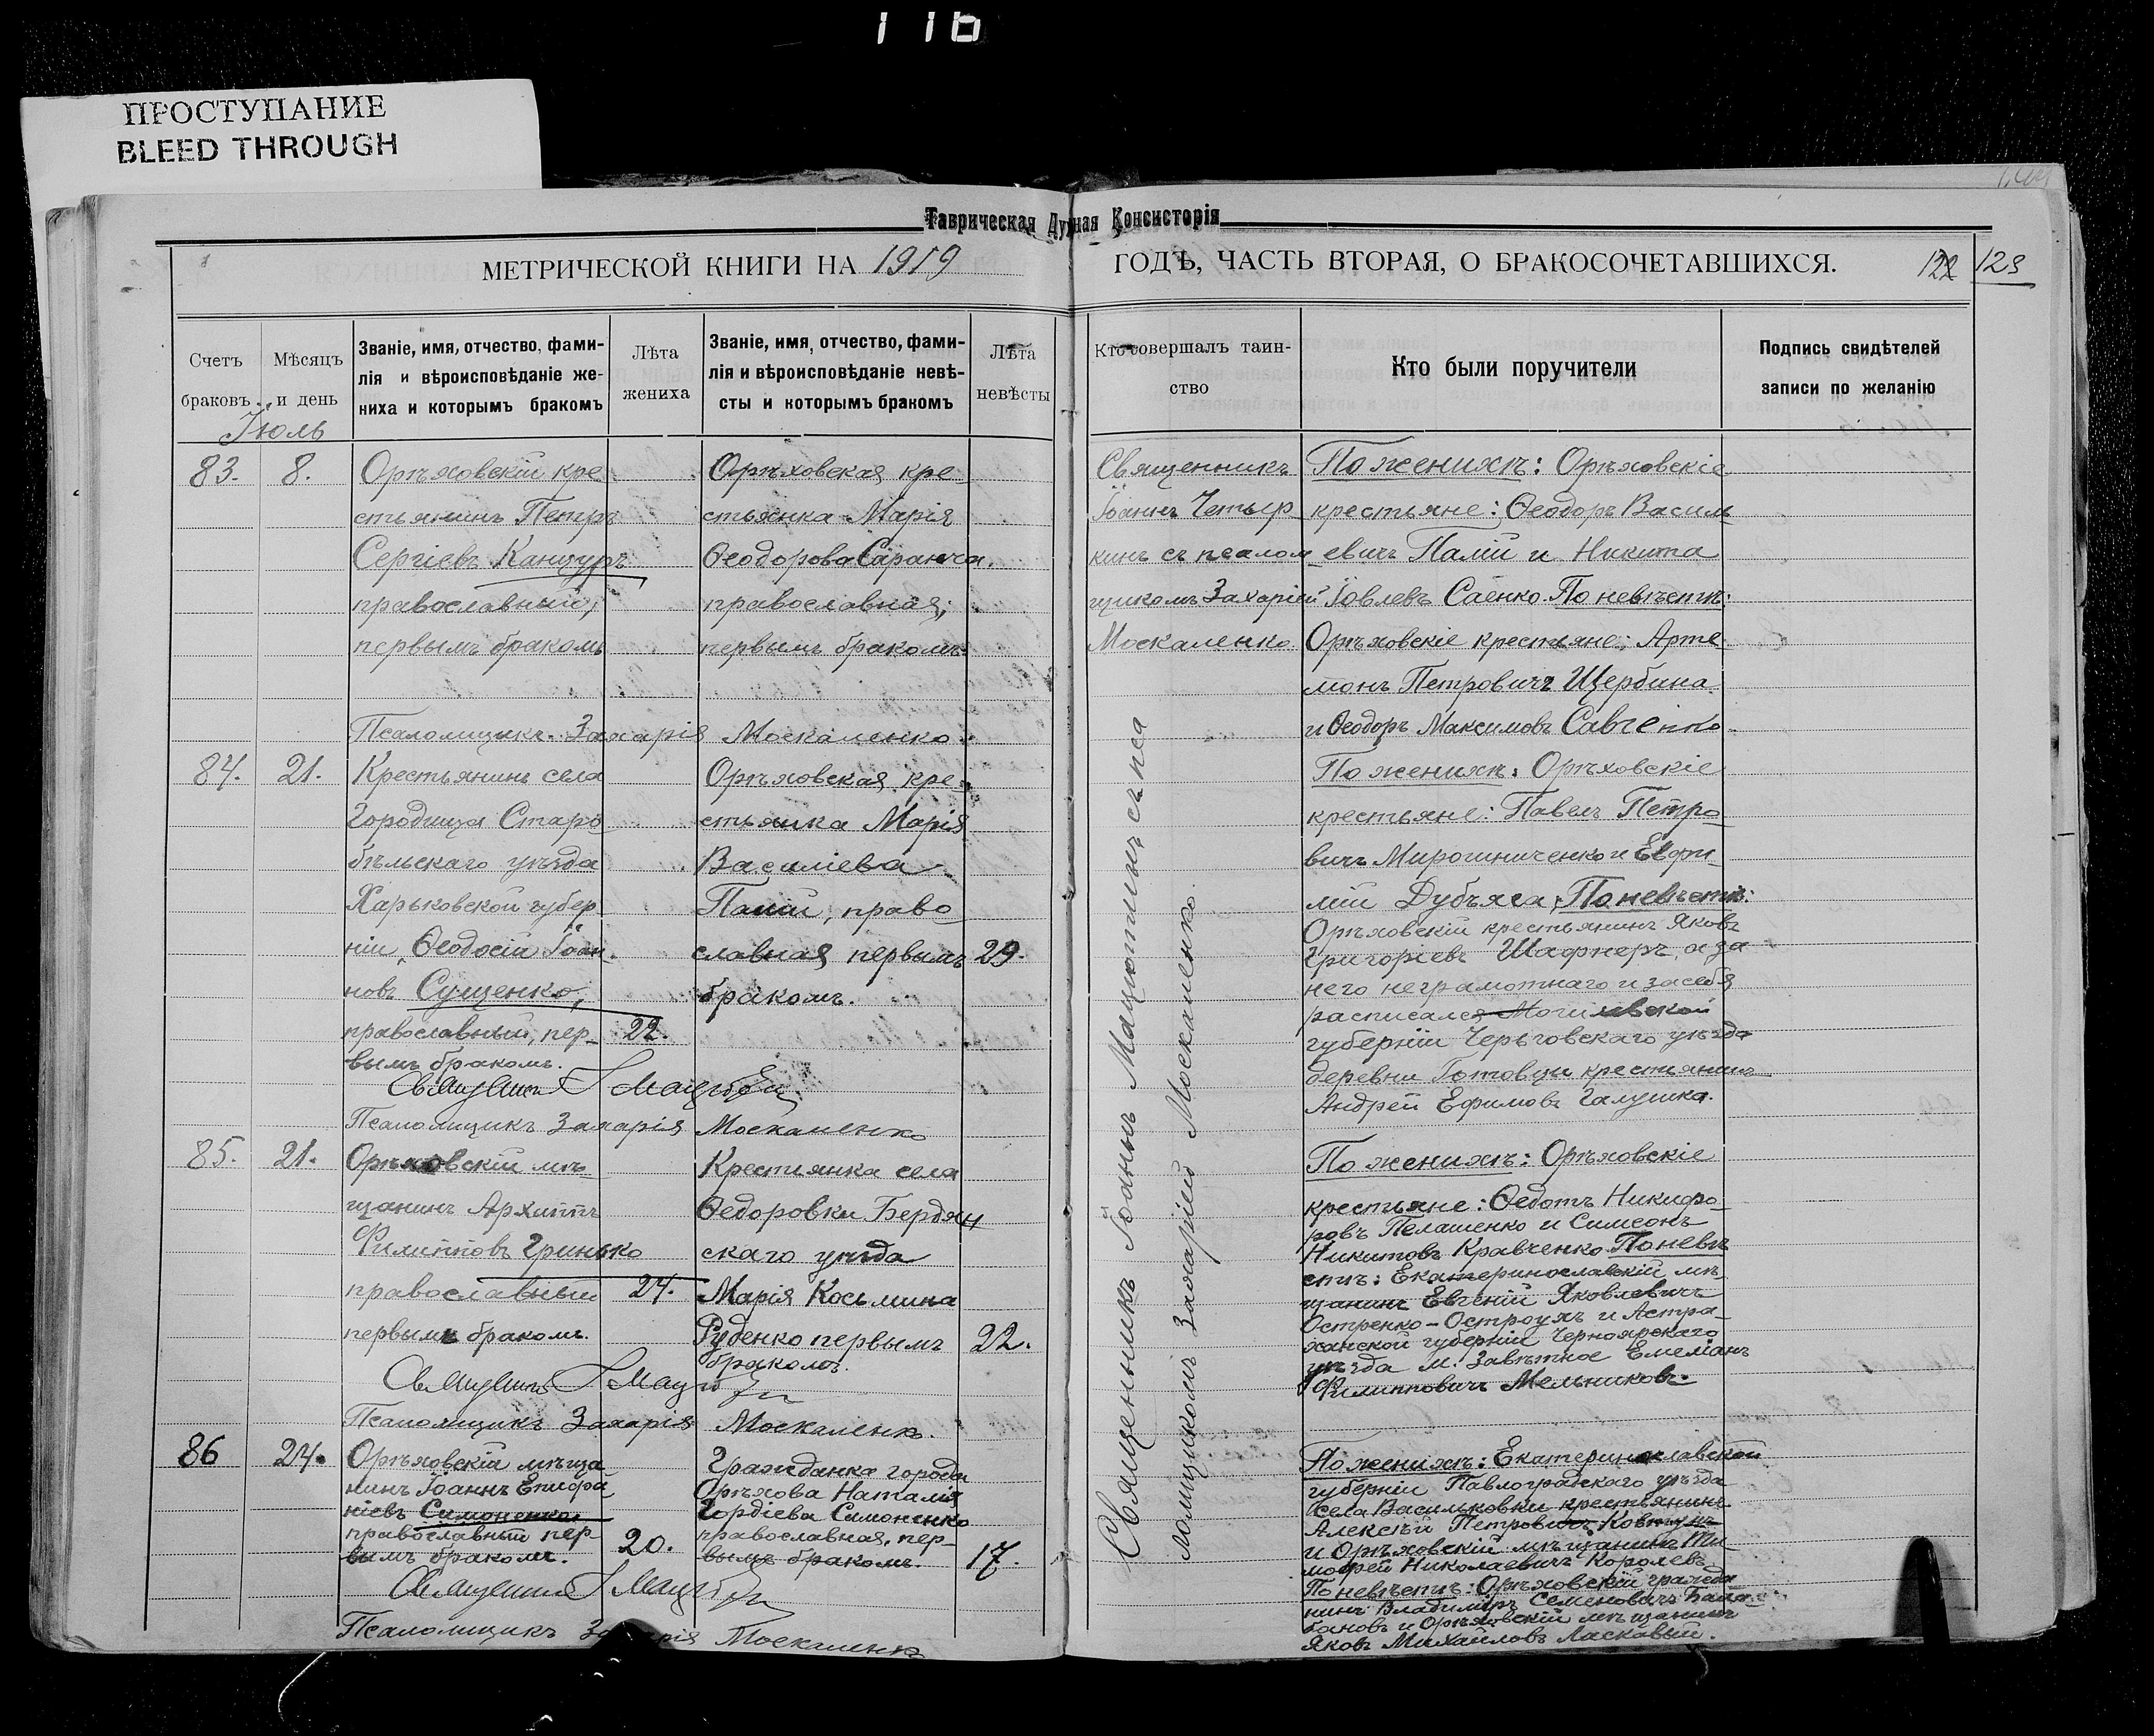 116
ПРОСТУПАНИЕ
BLEED THROUGH
Таврическая Духная Консисторія
МЕТРИЧЕСКОЙ КНИГИ НА 1919 ГОДЪ, ЧАСТЬ ВТОРАЯ, О БРАКОСОЧЕТАВШИХСЯ. 122 123
Счетъ браковъ.
Мѣсяцъ и день
Званіе, имя, отчество, фами-
лія и вѣроисповѣданіе же-
ниха и которымъ бракомъ
Лѣта жениха
Званіе, имя, отчество, фами-
лія и вѣроисповѣданіе невѣ-
сты и которымъ бракомъ
Лѣта невѣсты
Кто совершалъ таин-
ство
Кто были поручители
Подпись свидѣтелей
записи по желанію
Іюль
83. 8.
Орѣховскій кре
стьянинъ Петръ
Сергіевъ Канцуръ
православный,
первымъ бракомъ
Орѣховская кре
стьянка Марія
Ѳеодорова Саранча.
православная;
первымъ бракомъ.
Священникъ
Іоаннъ Четыр
кинъ съ псалом
щикомъ Захаріей
Москаленко
По женихѣ: Орѣховскіе
крестьяне: Ѳеодоръ Василь
евичъ Палій и Никита
Іовлевъ Саенко. По невѣстѣ:
Орѣховскіе крестьяне: Арте
монъ Петровичъ Щербина
и Ѳеодоръ Максимовъ Савченко
Псаломщикъ Захарія Москаленко.
84. 21.
Крестьянинъ села
Городища Старо
бѣльскаго уѣзда
Харьковской губер
ніи, Ѳеодосій Іоан.
новъ Сущенко,
православный, пер- 22.
вымъ бракомъ.
Орѣховская кре-
стьянка Марія
Василіева
Палій, право
славная первымъ 29.
бракомъ.
По женихѣ: Орѣховскіе
крестьяне: Павелъ Петро
вичъ Мирошниченко и Евфи-
мій Дубъяга, По невѣстѣ:
Орѣховскій крестьянинъ Яковъ
Григоріевъ Шафнеръ, а за
него неграмотнаго и за себя
расписался Могилевской
губерніи Черьговскаго уѣзда
деревни Готовцы крестьянинъ
Андрей Ефимовъ Галушка.
Священникъ І Мацютинъ
Псаломщикъ Захарія Москаленко
85. 21.
Орѣховскій мѣ
щанинъ Архиппъ
Филипповъ Гринько
православный 24.
первымъ бракомъ.
Крестьянка села
Ѳедоровки Бердян
скаго уѣзда
Марія Косьмина
Руденко первымъ 22.
бракомъ.
По женихѣ: Орѣховскіе
крестьяне: Ѳедотъ Никифо-
ровъ Пелашенко и Симеонъ
Никитовъ Кравченко По невѣ
стѣ: Екатеринославскій мѣ-
щанинъ Евгеній Яковлевичъ
Остренко-Остроухъ и Астра-
ханской губерніи Черноярскаго
уѣзда м. Завѣтное Емеліанъ
Филипповичъ Мельниковъ.
Священникъ І Мацютинъ
Псаломщикъ Захарія Москаленко.
86 24.
Орѣховскій мѣща
нинъ Іоаннъ Епифа
ніевъ Симоненко
православный пер- 20.
вымъ бракомъ.
Гражданка города
Орѣхова Наталія
Гордіева Симоненко
православная, пер-
вымъ бракомъ. 17.
По женихѣ: Екатеринославской
губерніи Павлоградскаго уѣзда
села Васильковки крестьянинъ
Алексѣй Петровичъ Ковтунъ
и Орѣховскій мѣщанинъ Ти-
мофей Николаевичъ Королевъ
По невѣстѣ: Орѣховскій гражда
нинъ Владиміръ Семеновичъ
и Орѣховскій мѣщанинъ
Яковъ Михайловъ Ласкавый.
Священникъ І Мацютинъ
Псаломщикъ Захарія Москаленко
Священникъ Іоаннъ Мацютинъ съ пса
ломщикомъ Захаріей Москаленко.